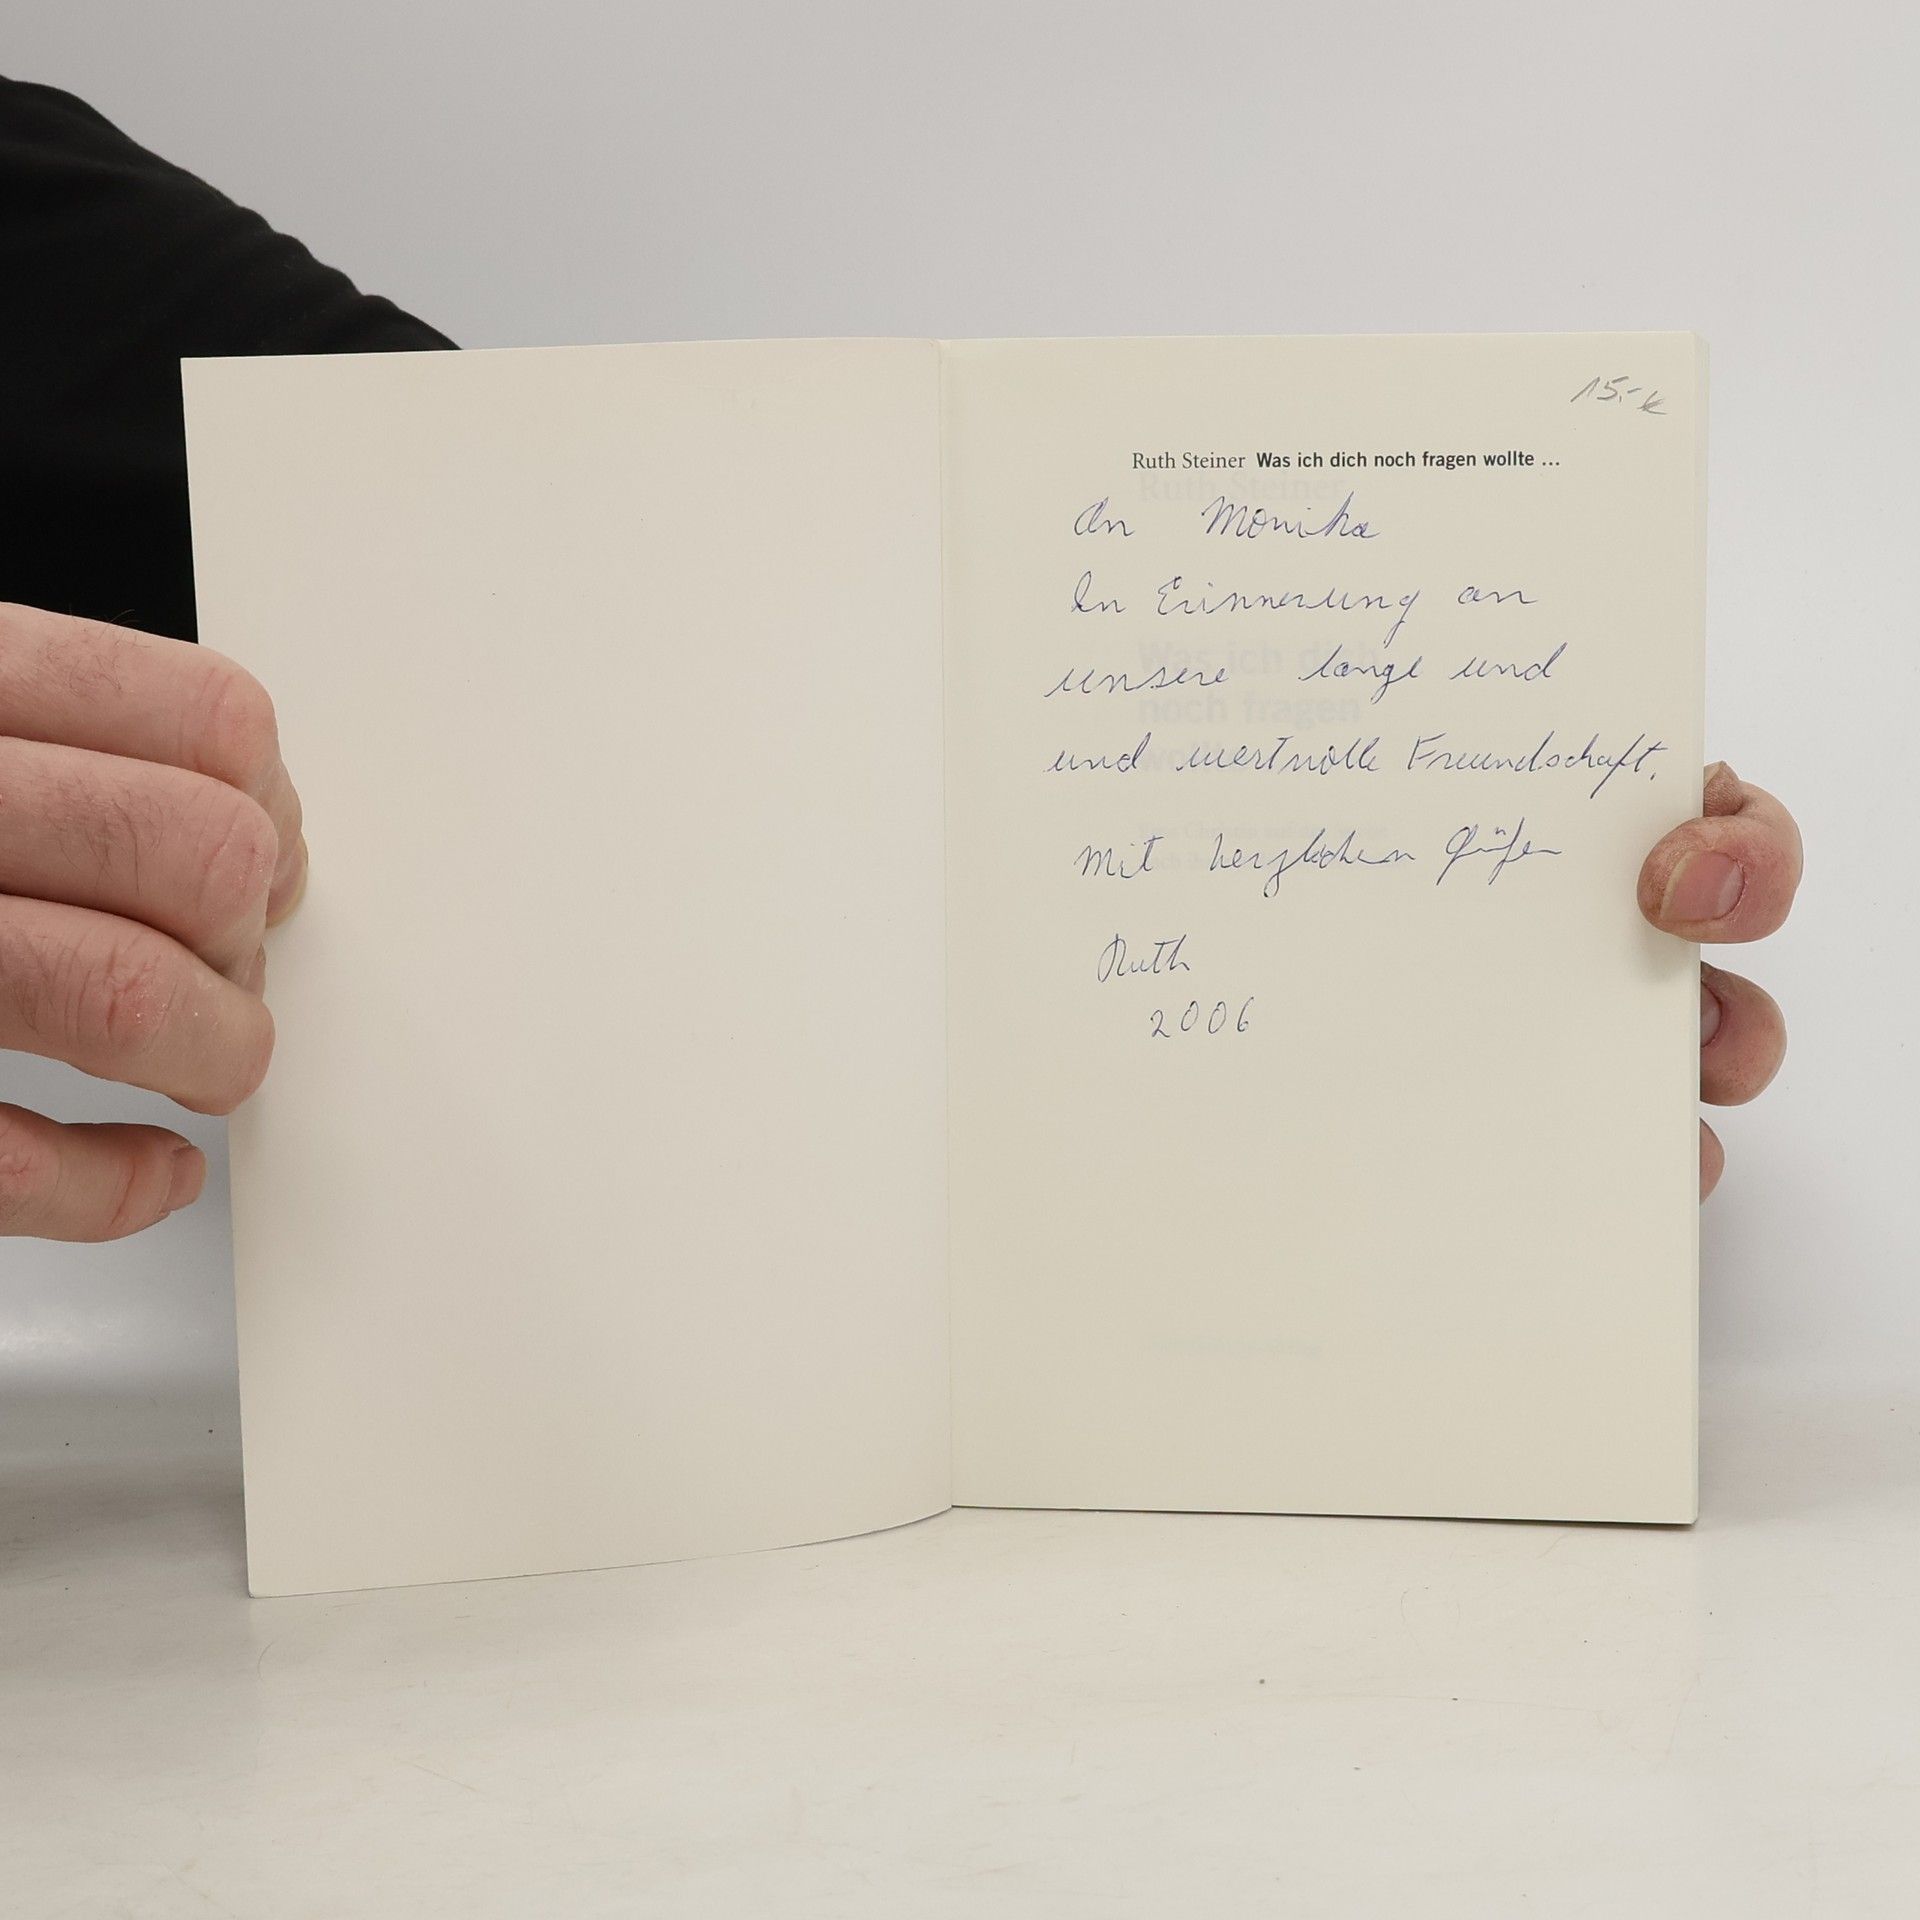 15.-
Ruth Steiner Was ich dich noch fragen wollte ...
An Monika
In Erinnerung an
unsere lange und
und wertvolle Freundschaft.
Mit herzlichen Grüßen
Ruth
2006